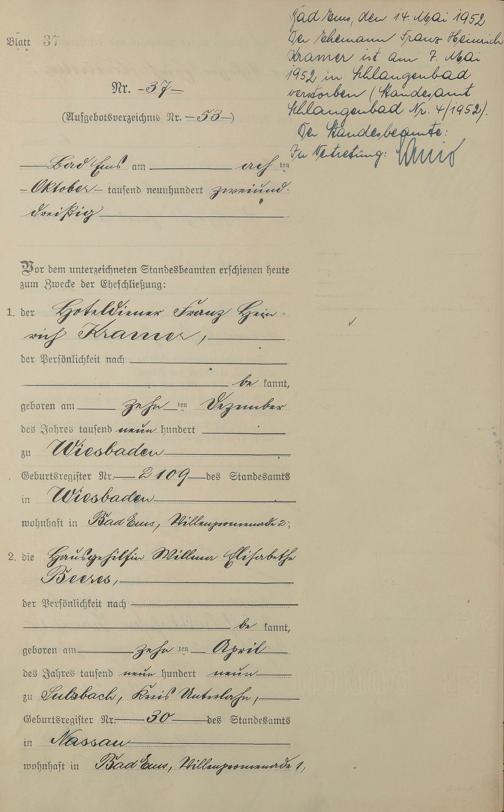 Blatt 37
Bad Ems, den 14. Mai 1952
Der Ehemann Franz Heinrich
Kramer ist am 7. Mai
1952 in Schlangenbad
verstorben (Standesamt
Schlangenbad Nr. 4/1952).
Der Standesbeamte:
In Vertretung:
Nr. 37
(Aufgebotsverzeichnis Nr. 53)
Bad Ems am acht ten
Oktober tausend neunhundert zweiund-
dreißig
Vor dem unterzeichneten Standesbeamten erschienen heute
zum Zwecke der Eheschließung:
1. der Hoteldiener Franz Hein-
rich Kramer,
der Persönlichkeit nach
be kannt,
geboren am zehn ten Dezember
des Jahres tausend neun hundert
zu Wiesbaden
Geburtsregister Nr. 2109 des Standesamts
in Wiesbaden
wohnhaft in Bad Ems, Villenpromenade 2;
2. die Hausgehilfin Willma Elisabethe
Beeres,
der Persönlichkeit nach
be kannt,
geboren am zehn ten April
des Jahres tausend neun hundert neun
zu Sulzbach, Kreis Unterlahn,
Geburtsregister Nr. 30 des Standesamts
in Nassau
wohnhaft in Bad Ems, Villenpromenade 1,